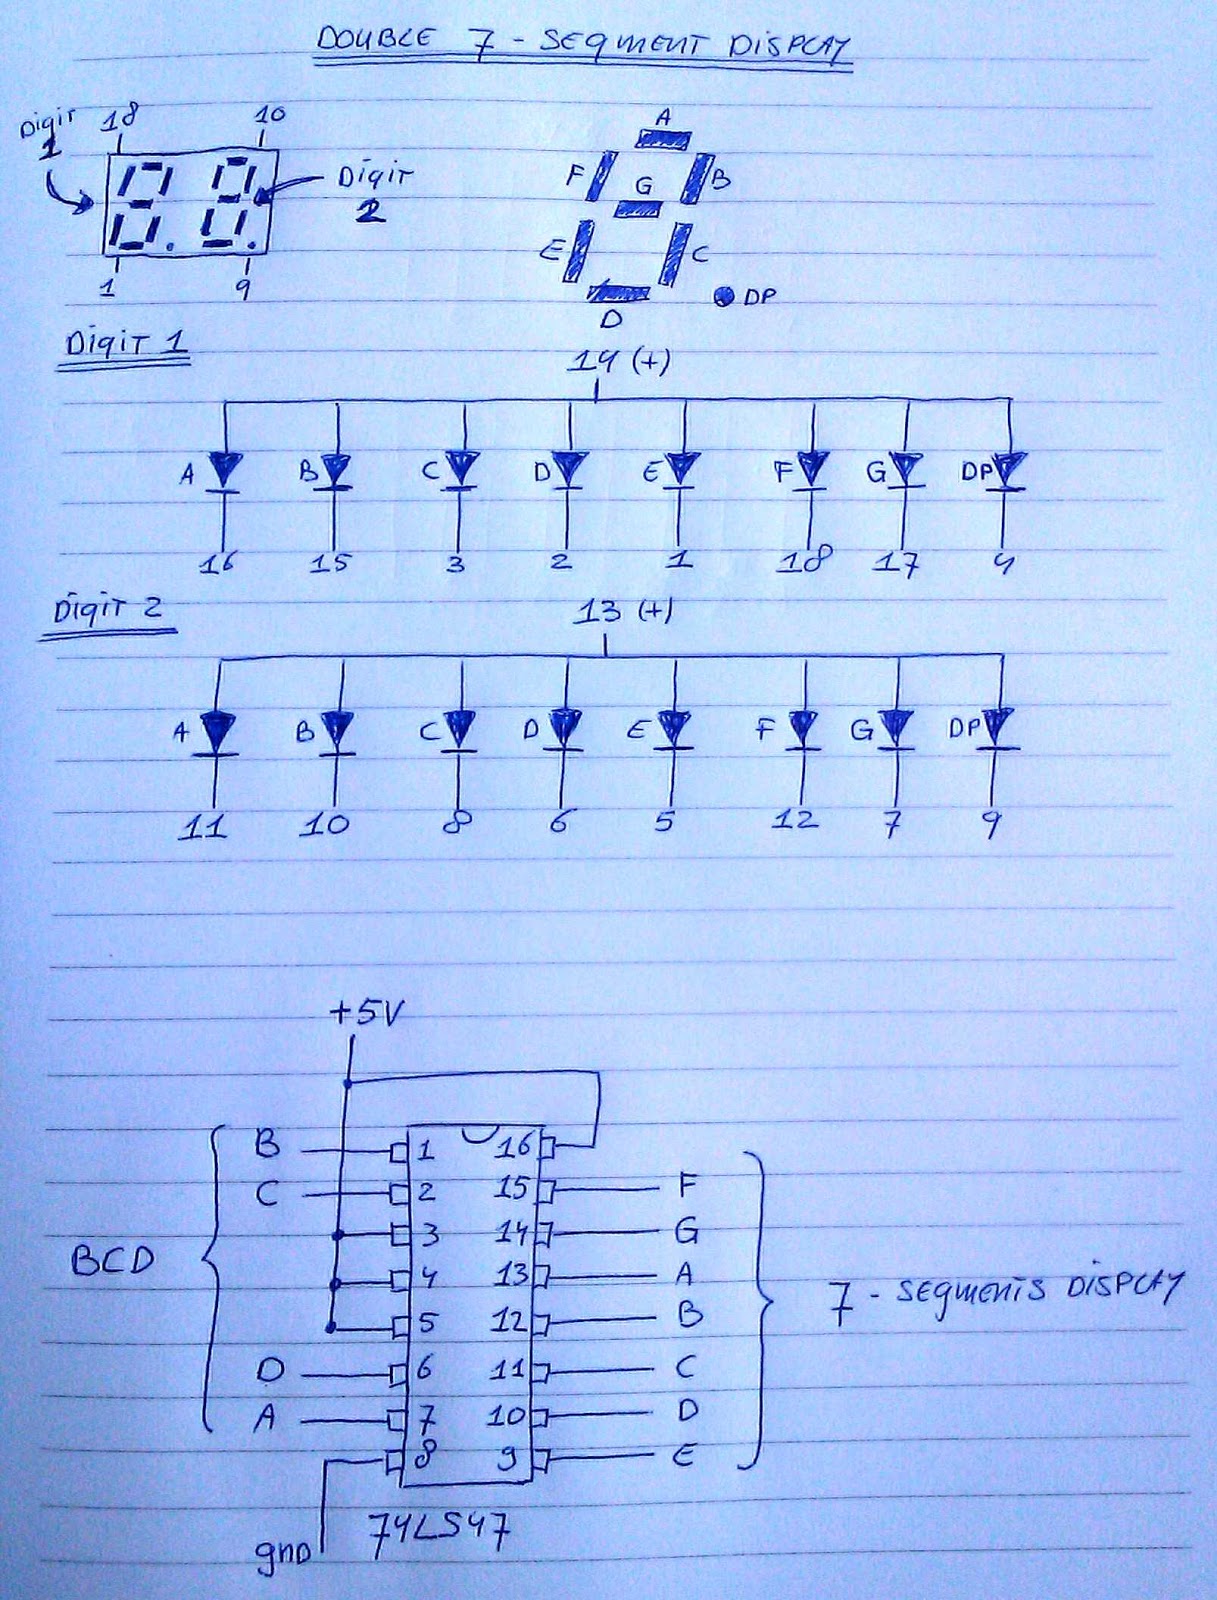 DOUBLE 7 - SEGMENT DISPLAY
Digit 1
18 10
Digit 2
1 9
A
F G B
E C
D DP
Digit 1
14 (+)
A B C D E F G DP
16 15 3 2 1 18 17 4
Digit 2
13 (+)
A B C D E F G DP
11 10 8 6 5 12 7 9
+5V
B 1 16
C 2 15 F
3 14 G
BCD
4 13 A
7 - SEGMENTS DISPLAY
5 12 B
D 6 11 C
A 7 10 D
8 9 E
gnd
74LS47